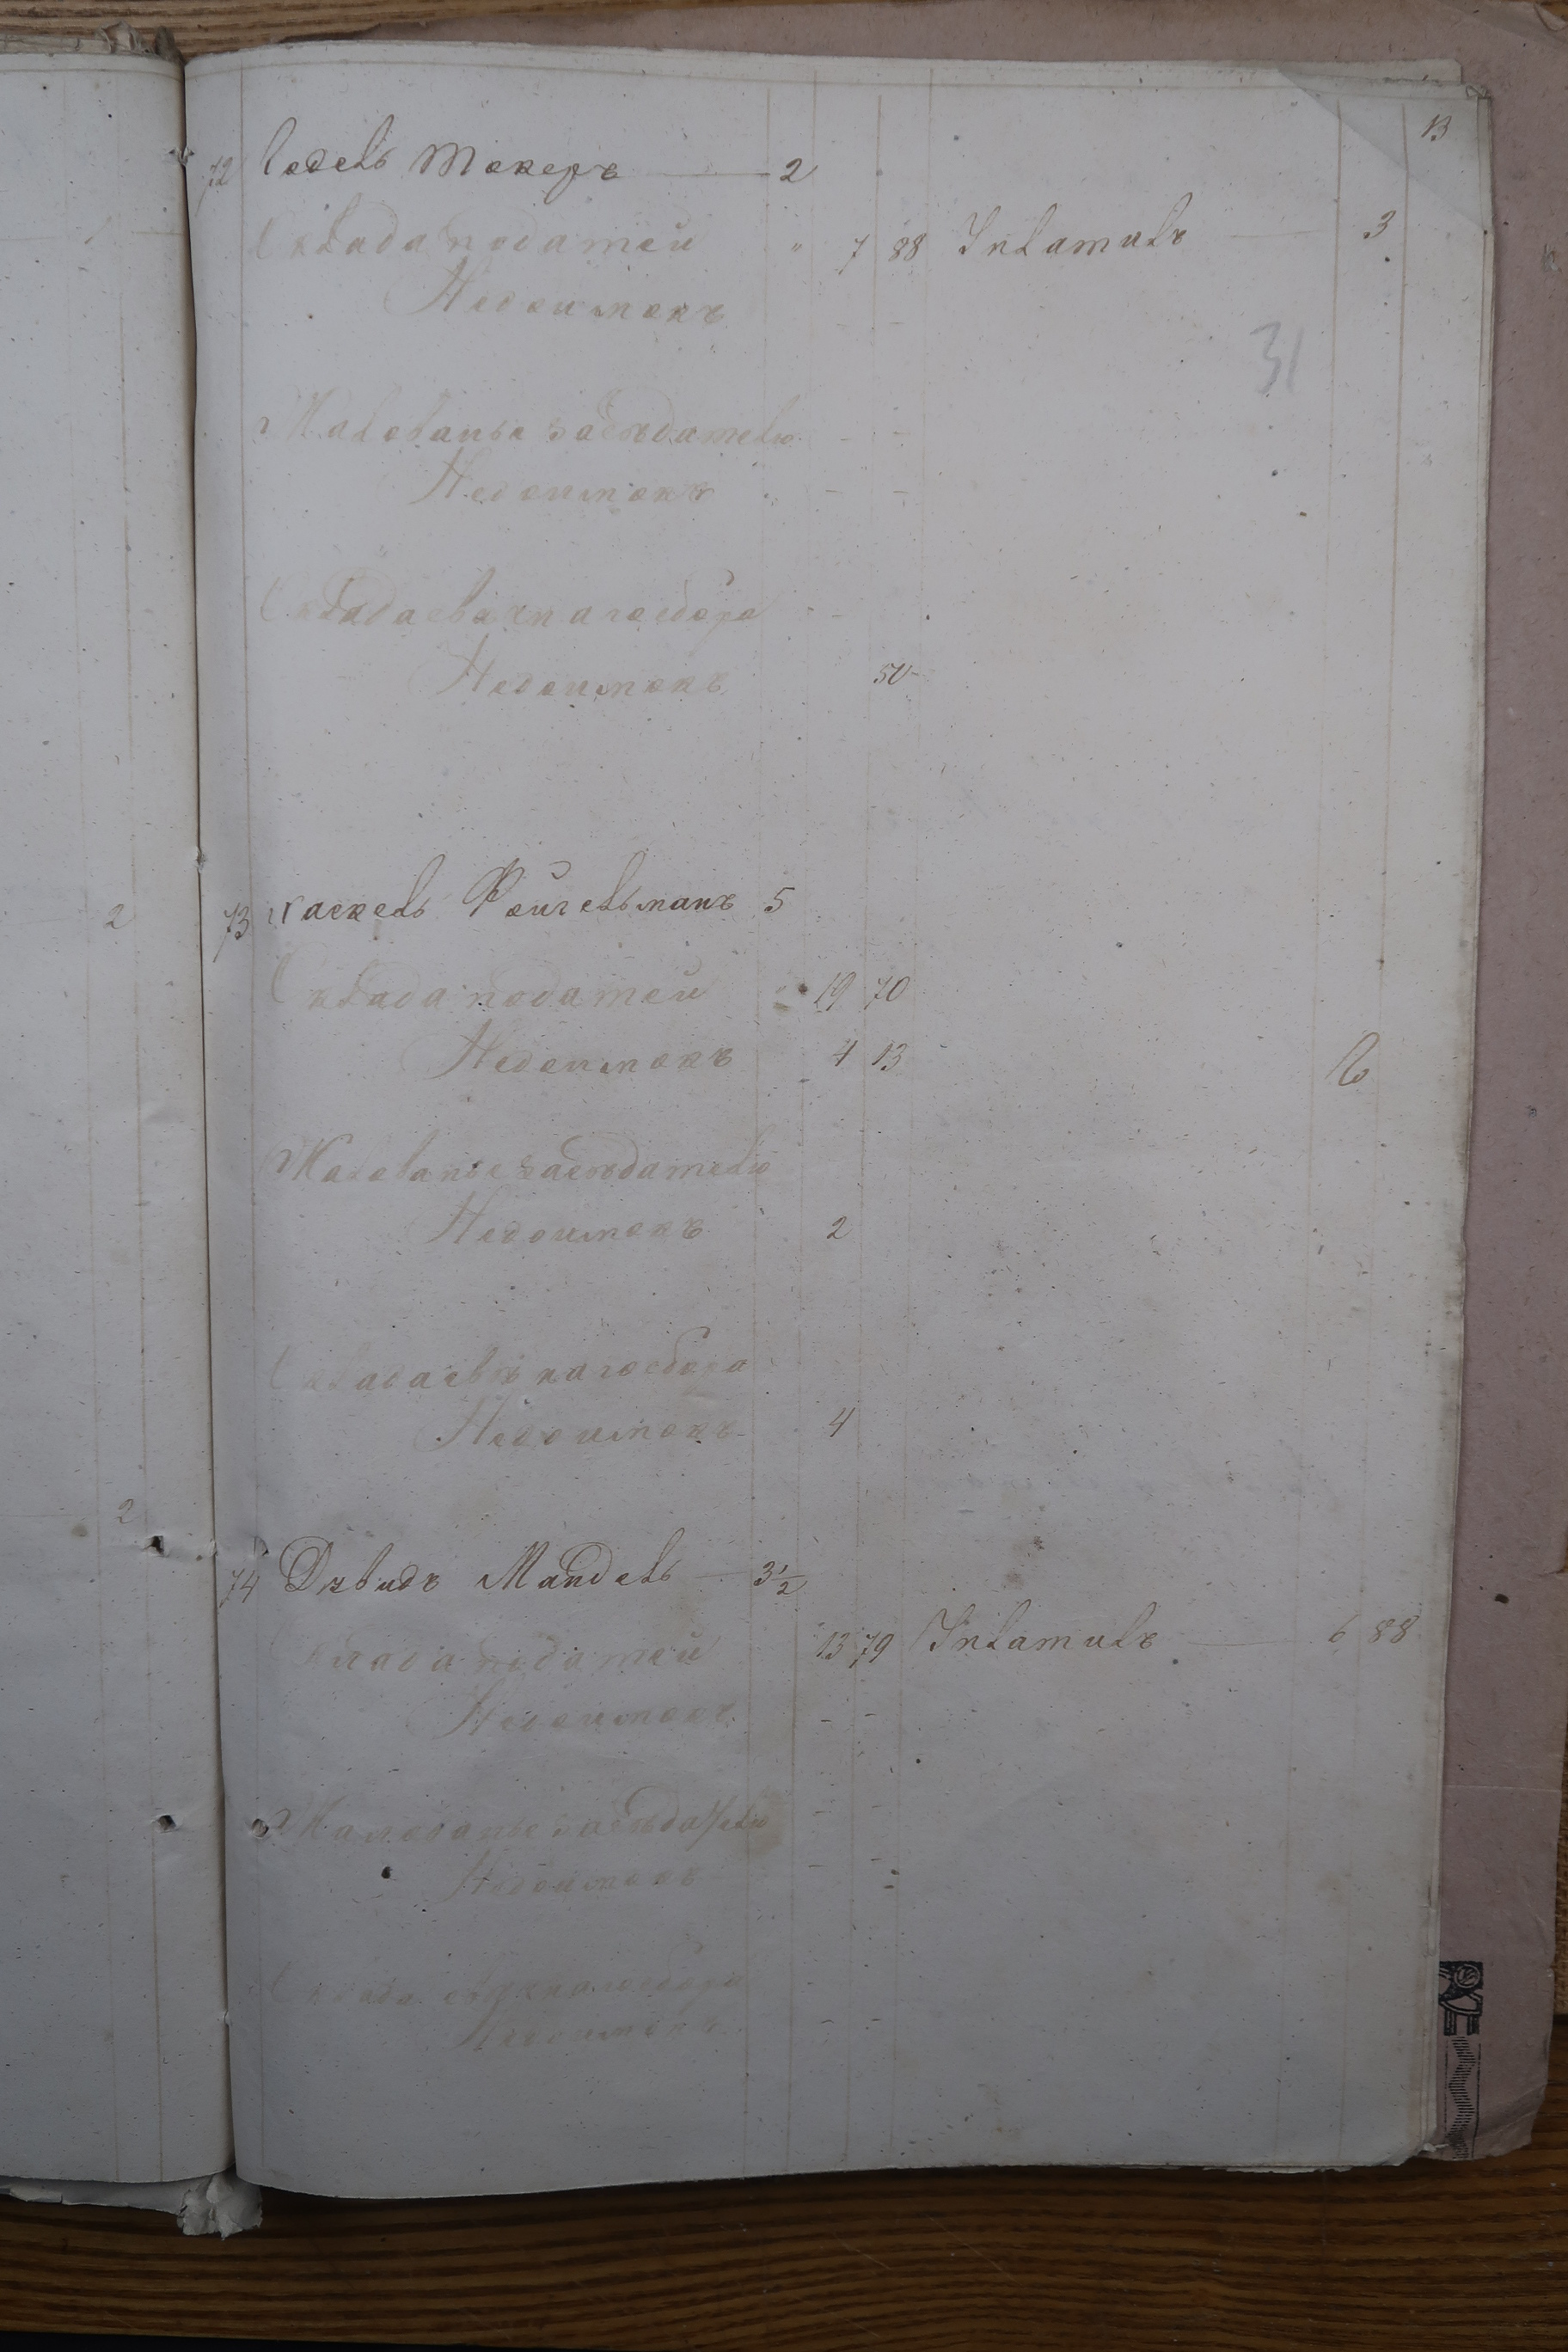 13
72 Іосель Токеръ — 2
Оклада податей " 7 88 Уплатилъ — 3
Недоимокъ - -
31
Жалованье засѣдателю - -
Недоимокъ - -
Оклада свѣчнаго сбора - -
Недоимокъ 50
2
73 Хаскель Фейгельманъ 5
Оклада податей 19 70
Недоимокъ 4 13
Жалованье засѣдателю
Недоимокъ 2
Оклада свѣчнаго сбора
Недоимокъ 4
2
74 Давидъ Мандель — 3 1/2
Оклада податей 13 79 Уплатилъ — 6 88
Недоимокъ - -
Жалованье засѣдателю - -
Недоимокъ - -
Оклада свѣчнаго сбора - -
Недоимокъ - -